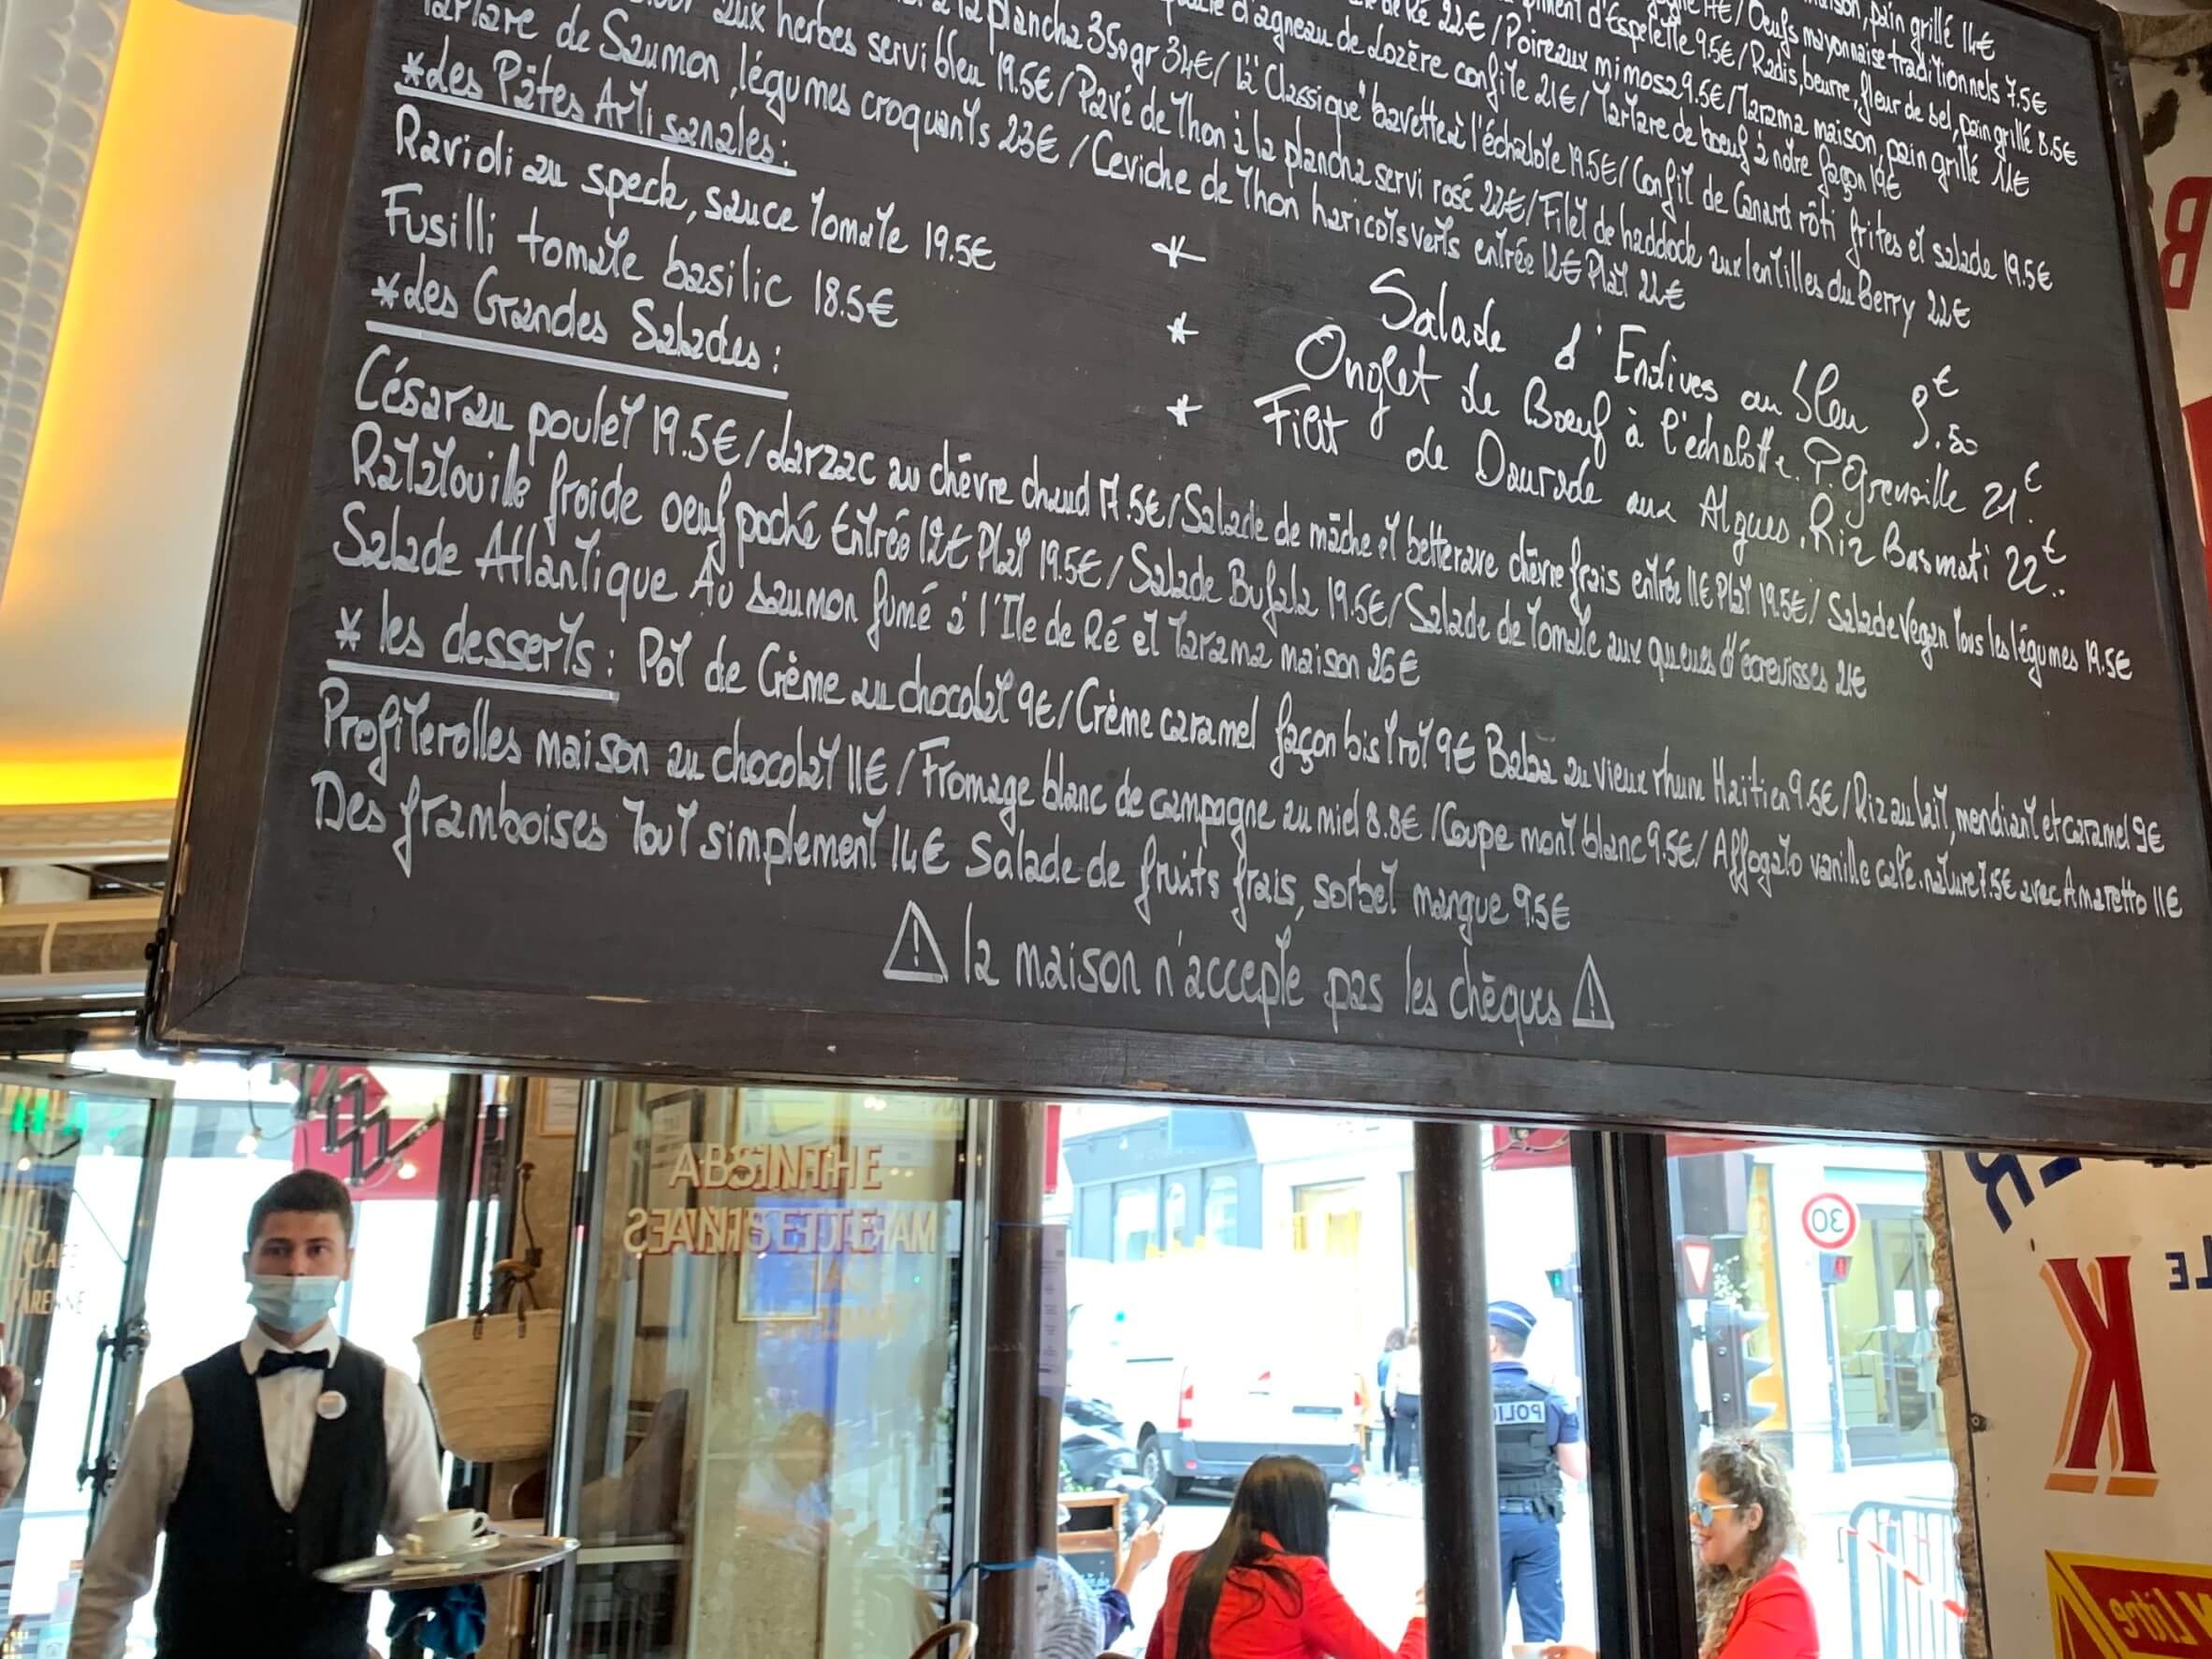 maison, pain grillé 14€
11€/Oeufs mayonnaise traditionnels 7.5€
piment d'Espelette 9.5€/Radis, beurre, fleur de sel, pain grillé 8.5€
de Ré 22€/Poireaux mimosa 9.5€/Tarama maison, pain grillé 11€
d'agneau de Lozère confite 21€/Tartare de boeuf à notre façon 19€
à la plancha 350gr 34€/la "Classique" bavette à l'échalote 19.5€/Confit de Canard rôti frites et salade 19.5€
aux herbes servi bleu 19.5€/Pavé de Thon à la plancha servi rosé 22€/Filet de haddock sur lentilles du Berry 22€
Tartare de Saumon, légumes croquants 23€/Ceviche de Thon haricots verts entrée 12€ Plat 22€
*Les Pâtes Artisanales:
Ravioli au speck, sauce Tomate 19.5€
Fusilli tomate basilic 18.5€
* Salade d'Endives au bleu 9.50€
* Onglet de Boeuf à l'échalotte. P. Grenaille 21.€
* Filet de Daurade aux Algues, Riz Basmati 22.€
*Les Grandes Salades:
César au poulet 19.5€/Larzac au chèvre chaud 17.5€/Salade de mâche et betterave chèvre frais entrée 11€ Plat 19.5€/Salade Vegan Tous les légumes 19.5€
Ratatouille froide oeuf poché Entrée 12€ Plat 19.5€/Salade Bufala 19.5€/Salade de Tomate aux queues d'écrevisses 21€
Salade Atlantique Au saumon fumé à l'Ile de Ré et Tarama maison 26€
* les desserts: Pot de Crème au chocolat 9€/Crème caramel façon bistrot 9€ Baba au vieux rhum Haïtien 9.5€/Riz au lait, mendiant et caramel 9€
Profiterolles maison au chocolat 11€/Fromage blanc de campagne au miel 8.8€/Coupe mont blanc 9.5€/Affogato vanille café. nature 7.5€ avec Amaretto 11€
Des framboises Tout simplement 14€ Salade de fruits frais, sorbet mangue 9.5€
⚠ la maison n'accepte pas les chèques ⚠
ABSINTHE
30
POLI
K
LE
Litre